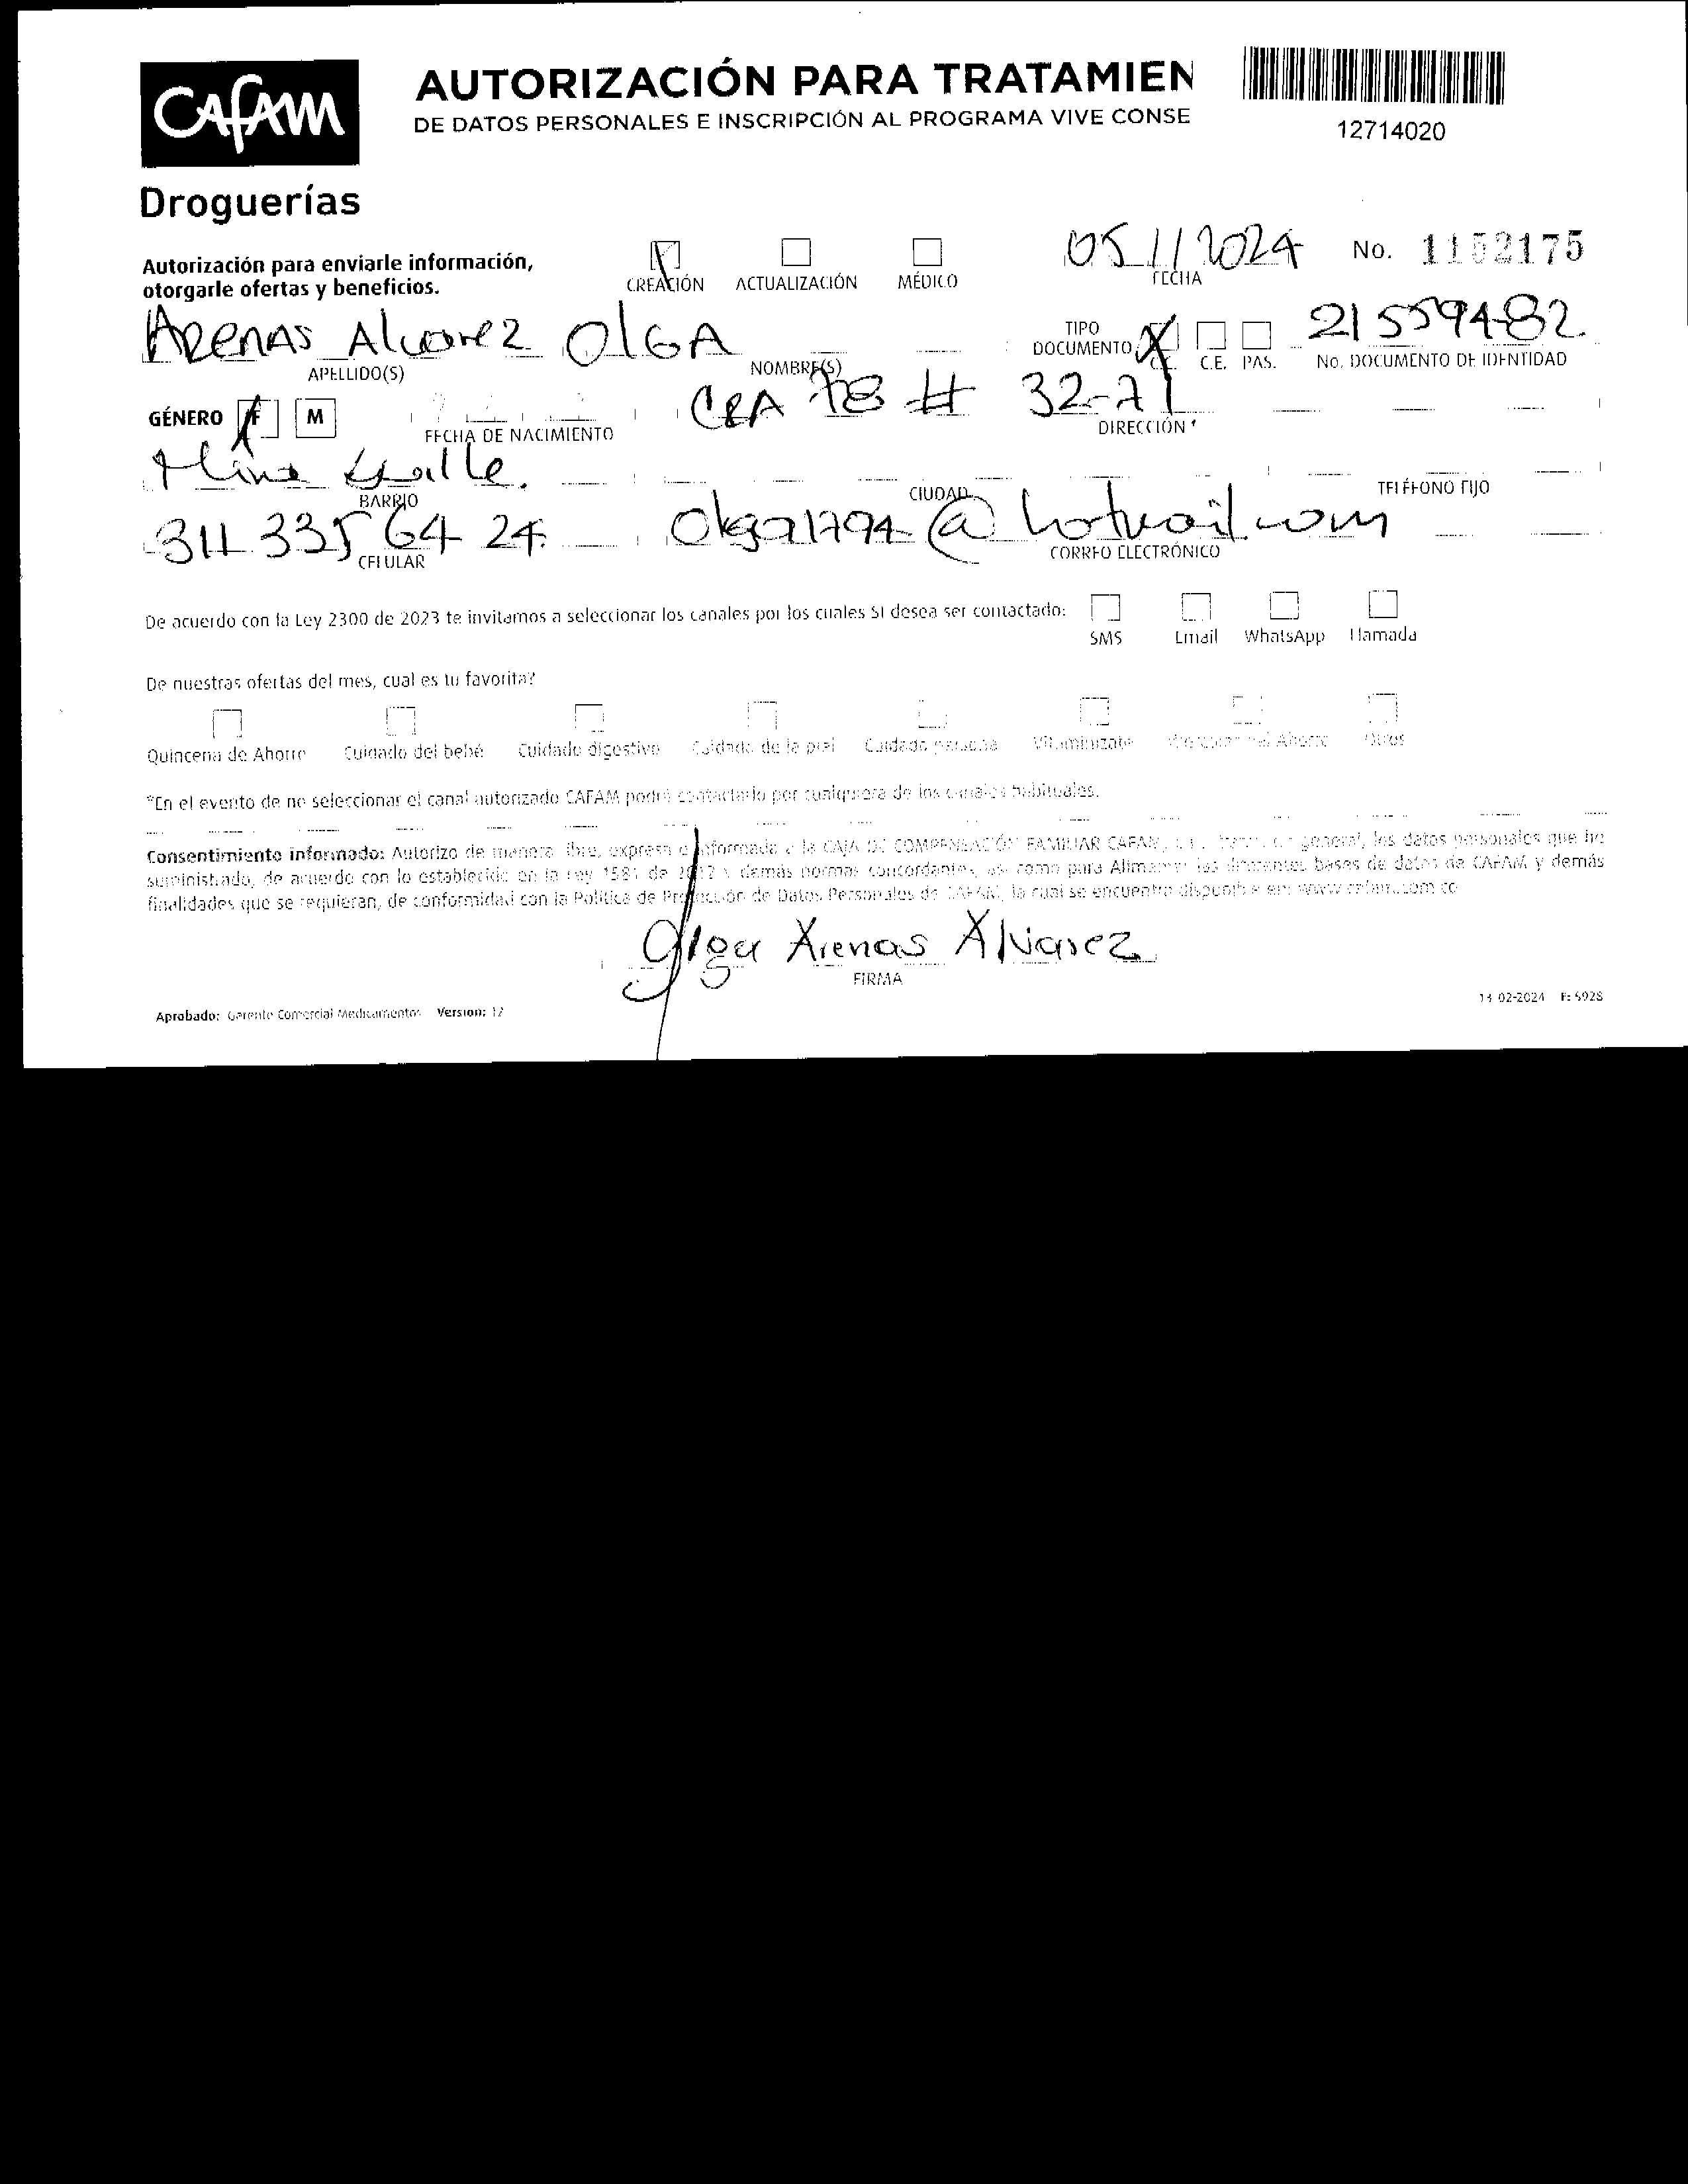 CAFAM
Droguerías
AUTORIZACIÓN PARA TRATAMIEN
DE DATOS PERSONALES E INSCRIPCIÓN AL PROGRAMA VIVE CONSE
12714020
Autorización para enviarle información,
otorgarle ofertas y beneficios.
CREACIÓN ACTUALIZACIÓN MÉDICO
05 11 2024
FECHA
No. 1152175
ARENAS Alvarez OlGA
APELLIDO(S) NOMBRE(S)
TIPO
DOCUMENTO C.C. C.E. PAS.
21559482
No. DOCUMENTO DE IDENTIDAD
GÉNERO F M
FECHA DE NACIMIENTO
CRA 78 # 32-71
DIRECCIÓN *
BARRIO CIUDAD TELÉFONO FIJO
311 335 64 24.
CELULAR
olga1794@hotmail.com
CORREO ELECTRÓNICO
De acuerdo con la Ley 2300 de 2023 te invitamos a seleccionar los canales por los cuales SI desea ser contactado:
SMS Email WhatsApp Llamada
De nuestras ofertas del mes, cual es tu favorita?
Quincena de Ahorro Cuidado del bebé Cuidado digestivo Cuidado de la piel Cuidado personal Vitaminízate Ahorro Otros
*En el evento de no seleccionar el canal autorizado CAFAM podrá contactarlo por cualquiera de los canales habituales.
Consentimiento informado: Autorizo de manera libre, expresa e informada a la CAJA DE COMPENSACIÓN FAMILIAR CAFAM, general, los datos personales que he
suministrado, de acuerdo con lo establecido en la Ley 1581 de 2012 y demás normas concordantes, así como para Alimentar las diferentes bases de datos de CAFAM y demás
finalidades que se requieran, de conformidad con la Política de Protección de Datos Personales de CAFAM, la cual se encuentra disponible en: www.cafam.com.co
Olga Arenas Alvarez
FIRMA
Aprobado: Gerente Comercial Medicamentos Version: 12
13-02-2024 F: 5928